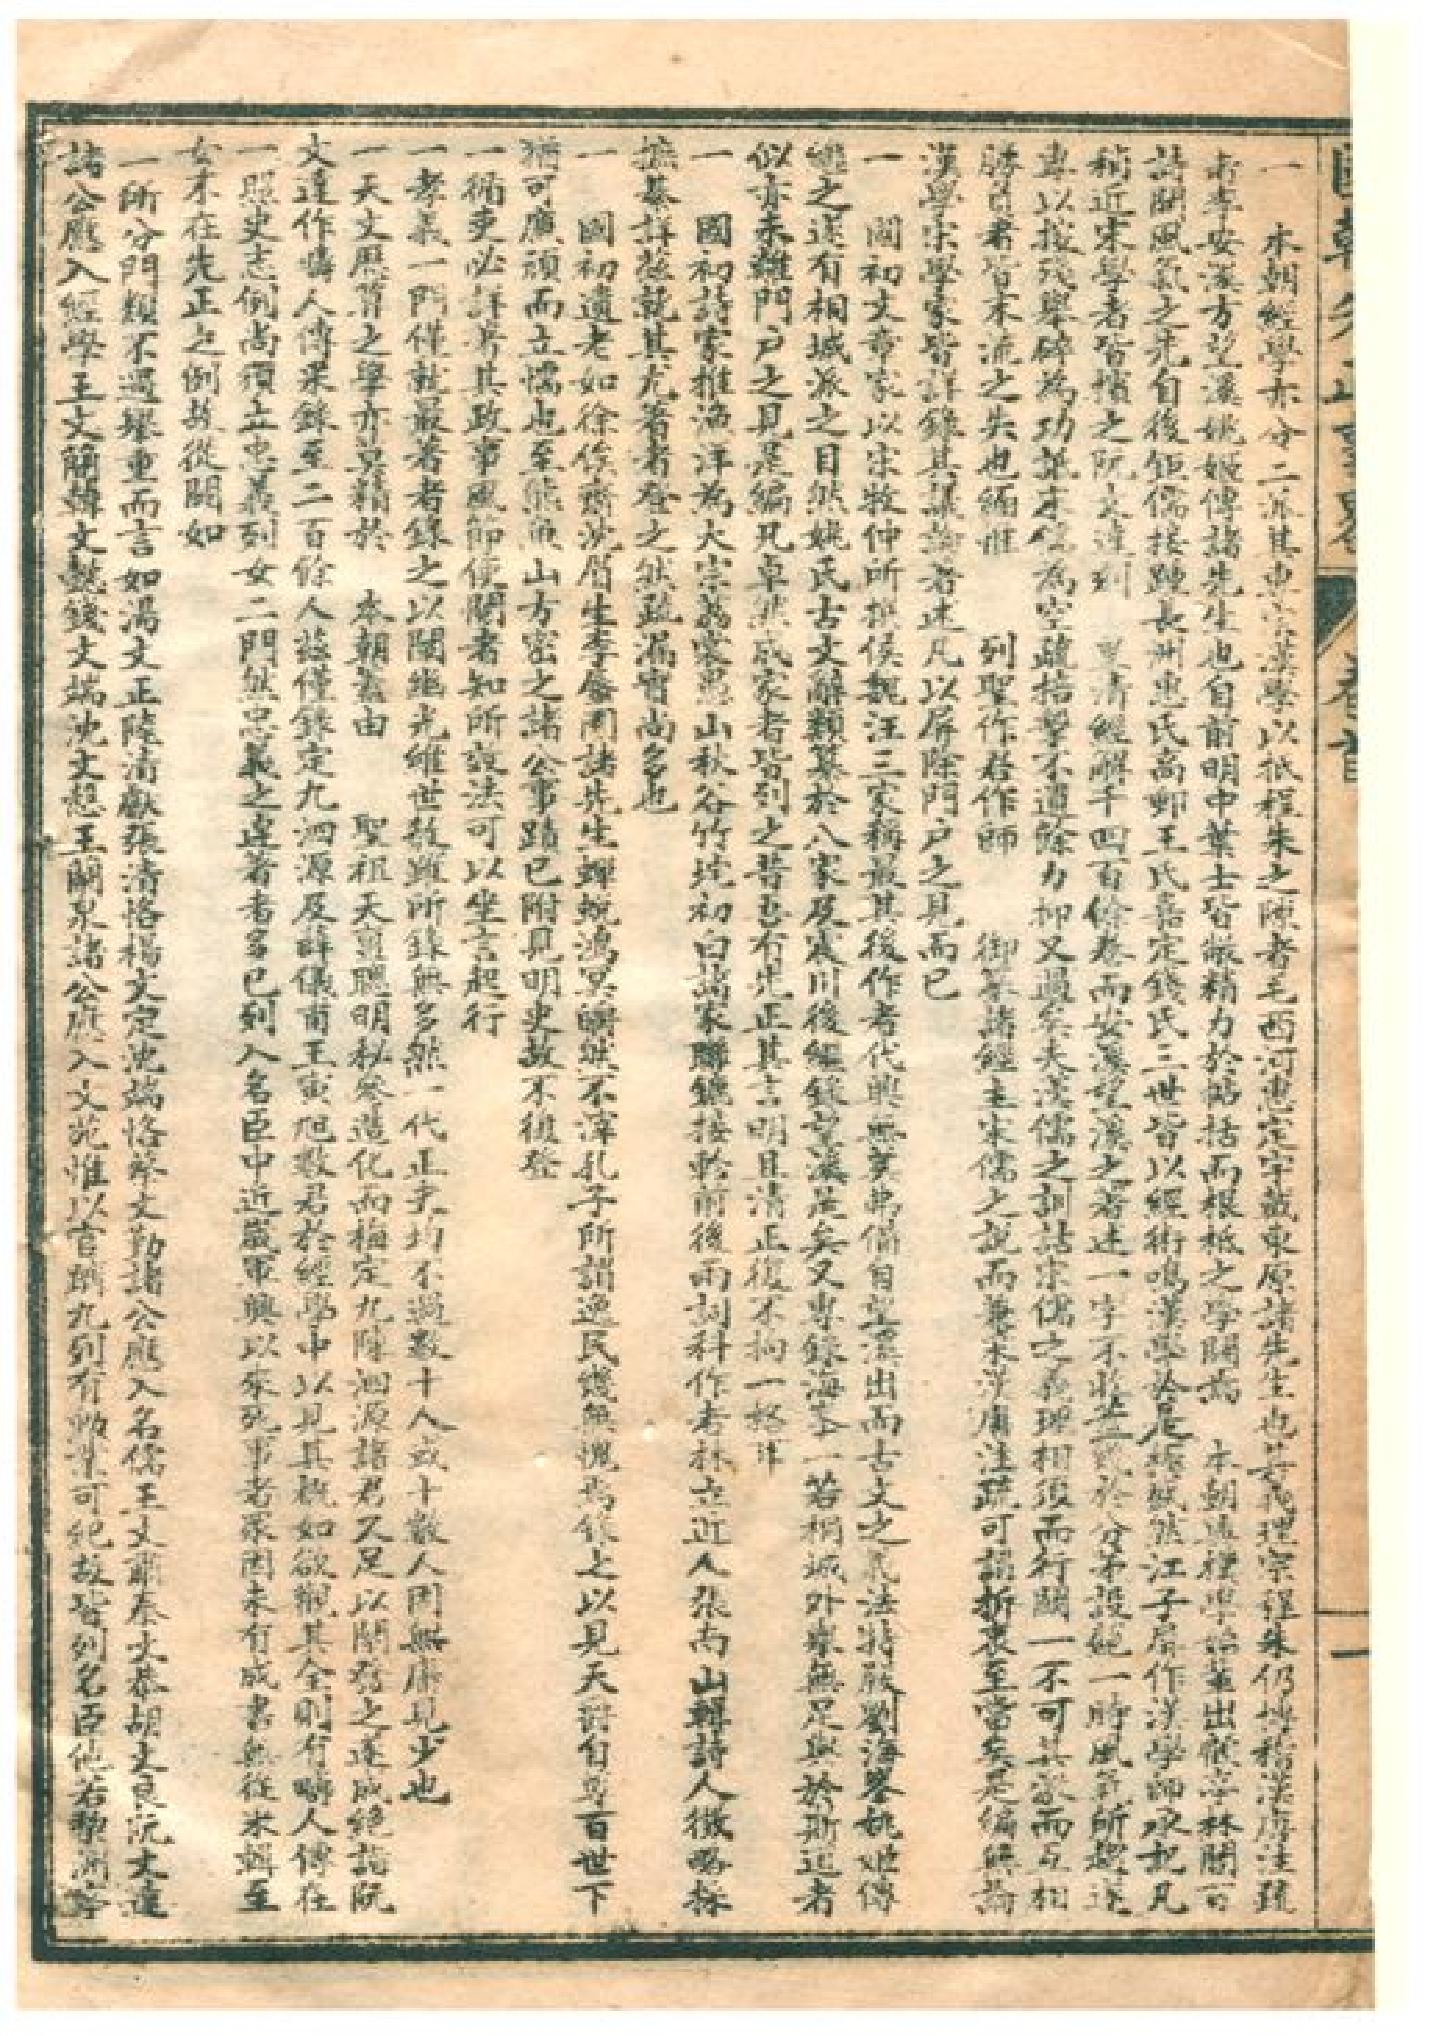 國朝先正事略 卷首 一
一 本朝經學亦分二派其專宗漢學以抵程朱之隙者毛西河惠定宇戴東原諸先生也若義理宗程朱仍博稽漢唐注疏
者李安溪方望溪姚姬傳諸先生也自前明中葉士皆敝精力於帖括而根柢之學闕焉 本朝 學 出顧亭林閻百
詩開風氣之先自後鉅儒接踵長洲惠氏高郵王氏嘉定錢氏三世皆以經術鳴漢學於是極盛然江子屏作漢學師承記凡
稍近宋學者皆擯之阮文達刻 皇清經解千四百餘卷而安溪望溪之著述一字不收 於分茅設蕝一時風氣所趨遂
專以搜殘舉碎為功詆宋儒為空疏掊擊不遺餘力抑又過矣夫漢儒之訓詁宋儒之義理相須而行闕一不可其激而互相
勝負者皆末流之失也緬惟 列聖作君作師 御纂諸經主宋儒之說而兼采漢唐注疏可謂折衷至當矣是編無論
漢學宋學家皆詳錄其議論著述凡以屏除門戶之見而已
一 國初文章家以宋牧仲所撰侯魏汪三家稱最其後作者代興無美弗備自望溪出而古文之義法特嚴劉海峯姚姬傳
繼之遂有桐城派之目然姚氏古文辭類纂於八家及震川後繼錄望溪足矣又專錄海峯一若桐城外舉無足與於斯道者
似亦未離門戶之見是編凡卓然成家者皆列之昔吾有先正其言明且清正復不拘一格耳
一 國初詩家推漁洋為大宗 愚山秋谷竹垞初白諸家聯鑣接軫前後兩詞科作者林立近人張南山輯詩人徵略採
摭綦詳茲就其尤著者登之然疏漏實尚多也
一 國初遺老如徐俟齋沈眉生李 諸先生蟬蛻鴻冥皭然不滓孔子所謂逸民幾無愧焉錄之以見天爵自尊百世下
猶可廉頑而立懦也至熊魚山方密之諸公事蹟已附見明史故不復登
一循吏必詳著其政事風節使閱者知所設法可以坐言起行
一孝義一門僅就最著者錄之以闡幽光維世教雖所錄無多然一代正史均不過數十人或十數人固無庸見少也
一天文歷算之學亦莫精於 本朝蓋由 聖祖天亶聰明秘參造化而梅定九陳泗源諸君又足以闡發之遂成絕詣阮
文達作疇人傳采錄至二百餘人茲僅錄定九泗源及薛儀甫王寅旭數君於經學中以見其概如欲觀其全則有疇人傳在
一照史志例尚須立忠義列女二門然忠義之達著者多已列入名臣中近歲軍興以來死事者衆固未有成書無從采輯至
女不在先正之例故從闕如
一所分門類不過舉重而言如湯文正陸清獻張清恪楊文定沈端恪蔡文勤諸公應入名儒王文肅秦文恭胡文良阮文達
諸公應入經學王文簡韓文懿錢文端沈文慤王蘭泉諸公應入文苑惟以官躋九列有勳業可紀故皆列名臣他若黎洲